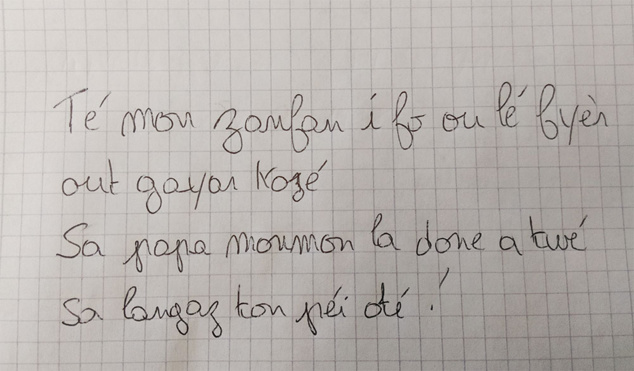 Té mon zanfan i fo ou lé fyèr
out gayar kozé
Sa papa momon la done a twé
Sa langaz ton péi oté !